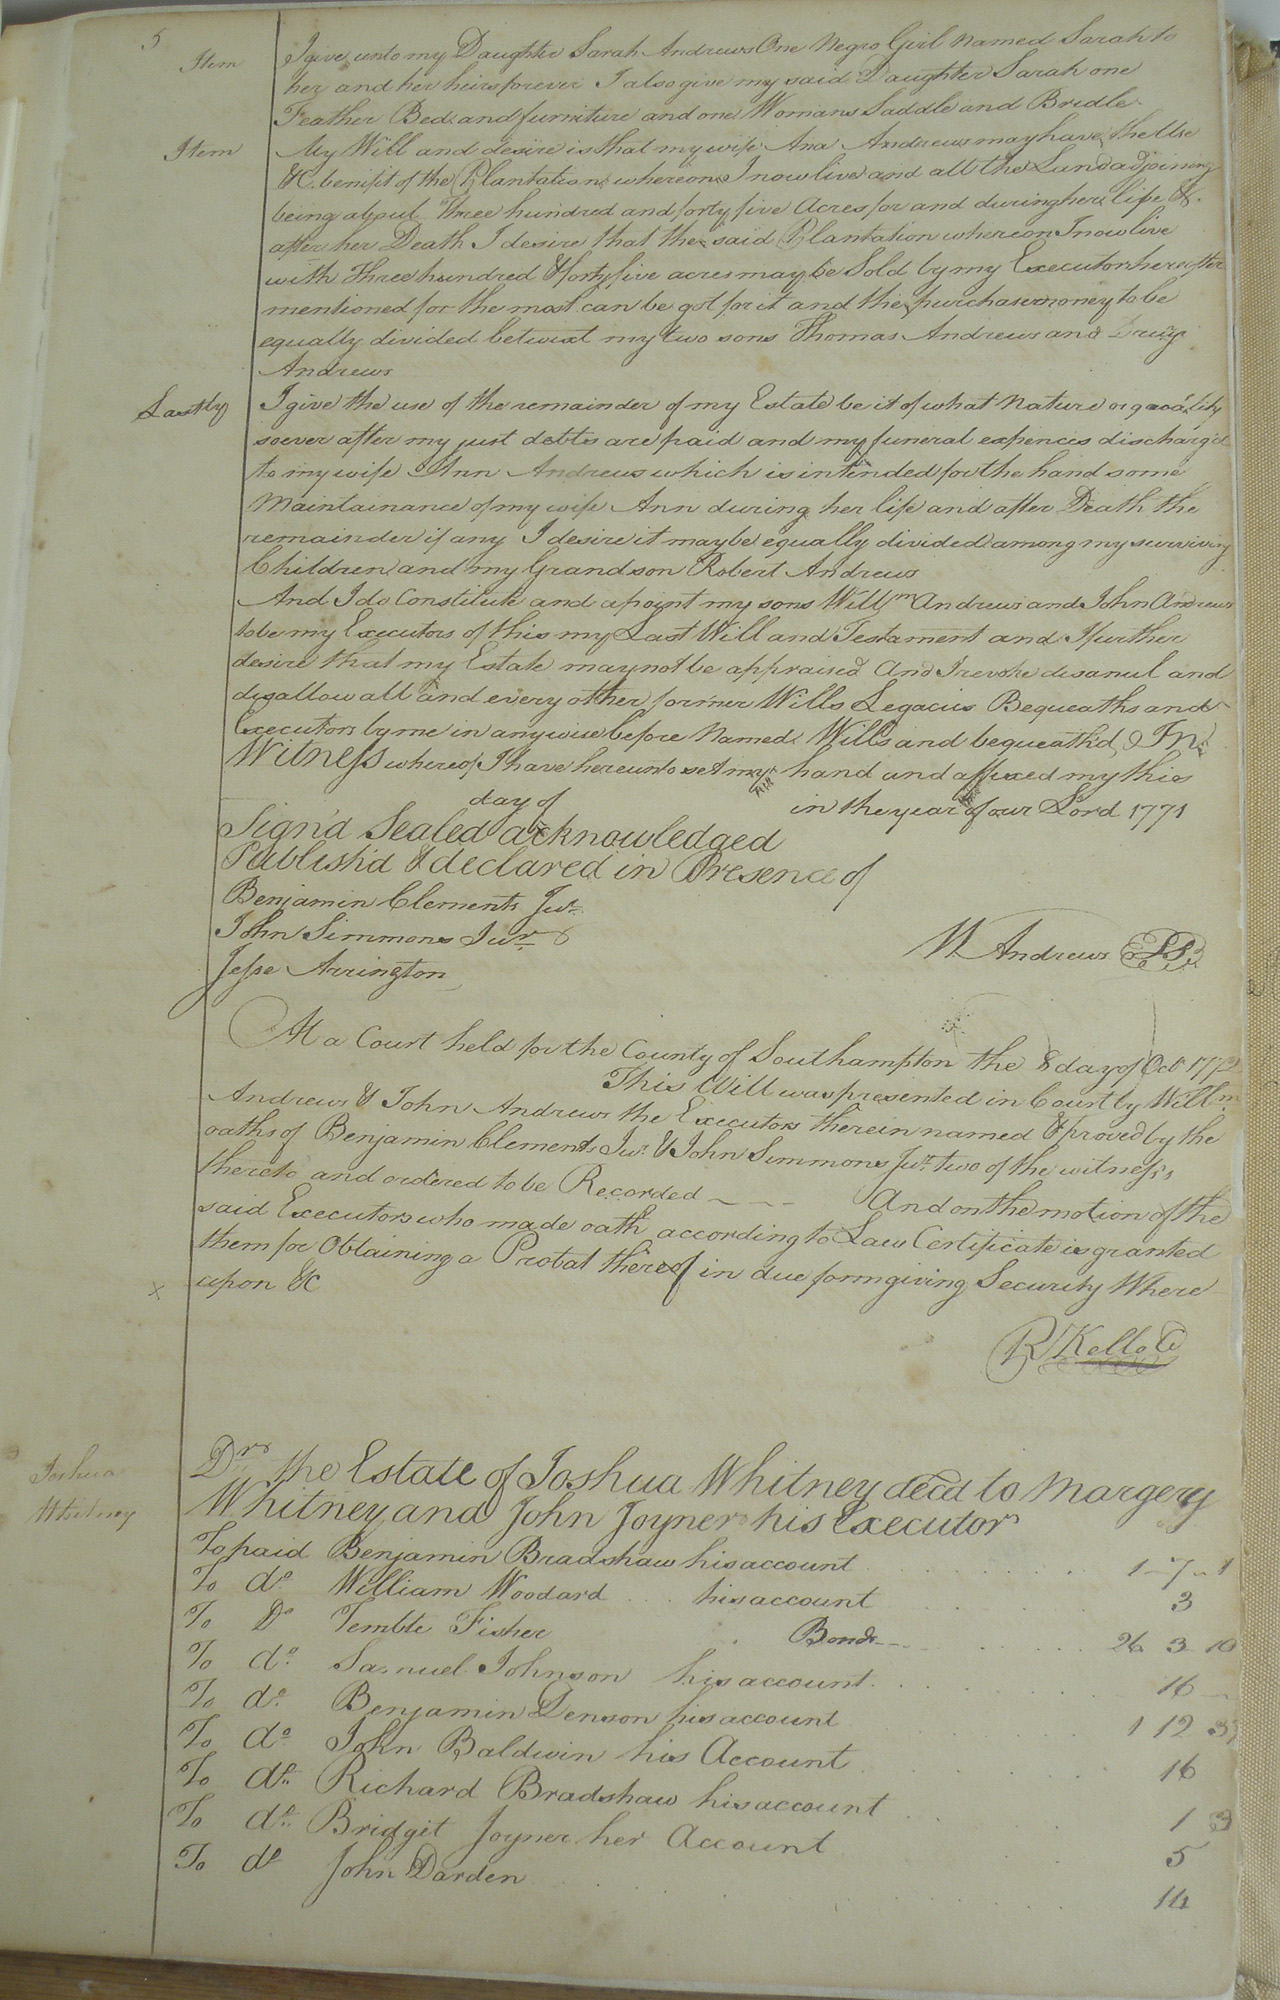 5
Item I give unto my Daughter Sarah Andrews One Negro Girl Named Sarah to
her and her heirs forever I also give my said Daughter Sarah one
Feather Bed and furniture and one Womans Saddle and Bridle
Item My Will and desire is that my wife Ann Andrews may have the Use
&C. benifit of the Plantation whereon I now live and all the Land adjoining
being about Three hundred and forty five Acres for and during her life &.
after her Death I desire that the said Plantation whereon I now live
with Three hundred & forty five acres may be Sold by my Executors hereafter
mentioned for the most can be got for it and the purchase money to be
equally divided betwixt my two sons Thomas Andrews and Drury
Andrews
Lastly I give the use of the remainder of my Estate be it of what Nature or quality
soever after my just debts are paid and my funeral expences discharg'd
to my wife Ann Andrews which is intended for the hand some
Maintainance of my wife Ann during her life and after Death the
remainder if any I desire it may be equally divided among my surviving
Children and my Grandson Robert Andrews
And I do Constitute and apoint my sons Willm Andrews and John Andrews
to be my Executors of this my Last Will and Testament and I further
desire that my Estate may not be appraised And I revoke disanul and
disallow all and every other former Wills Legacies Bequeaths and
Executors by me in anywise before Named Wills and bequeath'd, & In
Witness whereof I have hereunto set my hand and affixed my this
day of in the year of our Lord 1771
Sign'd Sealed acknowledged
Publish'd & declared in Presence of
Benjamin Clements Jur.
John Simmons Jur
Jesse Arrington
W. Andrews LS
At a Court held for the County of Southampton the 8 day of Oct 1772
This Will was presented in Court by Willm
Andrews & John Andrews the Executors therein named & proved by the
oaths of Benjamin Clements Jur. & John Simmons Jur. two of the witness's
thereto and ordered to be Recorded And on the motion of the
said Executors who made oath according to Law Certificate is granted
them for Obtaining a Probat thereof in due form giving Security Where
x upon &C
R Kello C
Joshua
Whitney
Dr. the Estate of Joshua Whitney decd to Margery
Whitney and John Joyner his Executor
To paid Benjamin Bradshaw his account 1 - 7 - 1
To do. William Woodard his account 3
To Do Temble Fisher Bond 26 3 10
To do. Samuel Johnson his account 16
To do. Benjamin Denson his account 1 12 3
To do. John Baldwin his Account 16
To do. Richard Bradshaw his account 1 3
To do. Bridgit Joyner her Account 5
To do John Darden 14